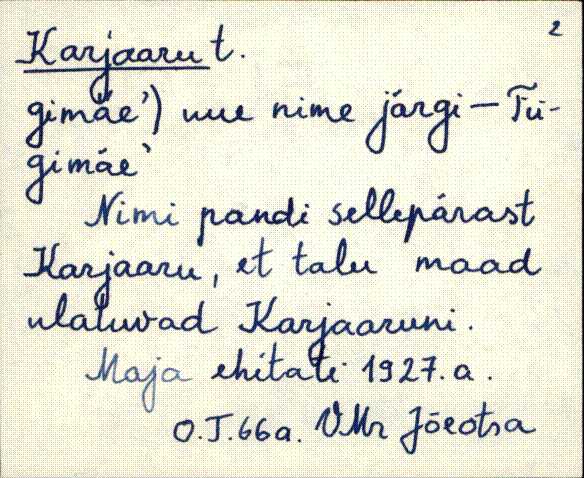 2
Karjaaru t.
gimäe') uue nime järgi — Tü-
gimäe'
Nimi pandi sellepärast
Karjaaru, et talu maad
ulatuvad Karjaaruni.
Maja ehitati 1927. a.
O.J. 66 a. VMr Jõeotsa